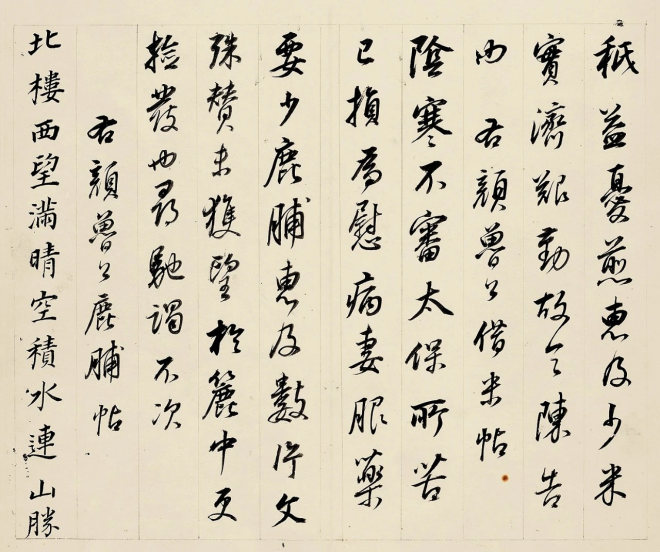 秖益憂煎惠及少米
實濟艱勤故令陳告
也 右顏魯公借米帖
陰寒不審太保所苦
已損為慰病妻服藥
要少鹿脯惠及數片父
殊贊未獲望於簏中更
撿發也尋馳謁不次
右顏魯公鹿脯帖
北樓西望滿晴空積水連山勝